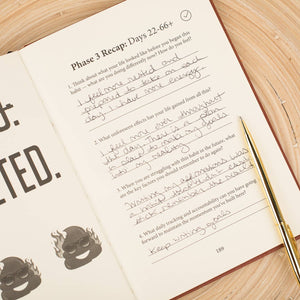 Phase 3 Recap: Days 22-66+
1. Think about what your life looked like before you began this
habit — what are you doing differently now? How do you feel?
I feel more rested and
prepared to take on any
day. I have more energy.
2. What unforeseen effects has your life gained from all this?
I feel more over throughout
the day. There is a plan
in place to make my goals
into my reality.
3. When you are struggling with this habit in the future, what
are the key factors you should remember to do again?
Writing my affirmations was
a
remember the
4. What daily tracking and accountability can you have going
forward to maintain the momentum you've built here?
Keep writing goals
189
D.
ETED.